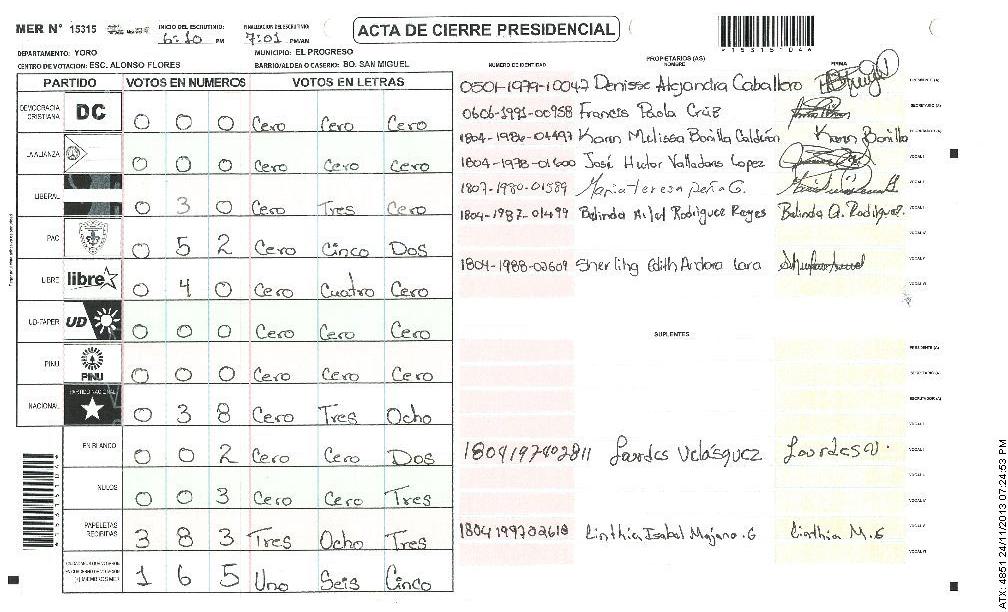 MER N° 15315
INICIO DEL ESCRUTINIO: 6:10 PM
FINALIZACION DEL ESCRUTINIO: 7:01 PM/AM
ACTA DE CIERRE PRESIDENCIAL
DEPARTAMENTO: YORO
MUNICIPIO: EL PROGRESO
CENTRO DE VOTACION: ESC. ALONSO FLORES
BARRIO/ALDEA O CASERIO: BO. SAN MIGUEL
PARTIDO VOTOS EN NUMEROS VOTOS EN LETRAS
DEMOCRACIA CRISTIANA DC 0 0 0 Cero Cero Cero
LA ALIANZA 0 0 0 Cero Cero Cero
LIBERAL 0 3 0 Cero Tres Cero
PAC 0 5 2 Cero Cinco Dos
LIBRE libre 0 4 0 Cero Cuatro Cero
UD-FAPER UD 0 0 0 Cero Cero Cero
PINU PINU 0 0 0 Cero Cero Cero
NACIONAL PARTIDO NACIONAL 0 3 8 Cero Tres Ocho
EN BLANCO 0 0 2 Cero Cero Dos
NULOS 0 0 3 Cero Cero Tres
PAPELETAS RECIBIDAS 3 8 3 Tres Ocho Tres
1 6 5 Uno Seis Cinco
PROPIETARIOS (AS)
NUMERO DE IDENTIDAD NOMBRE FIRMA
0501-1979-10047 Denisse Alejandra Caballero
0606-1991-00958 Francis Paola Cruz
1804-1986-04497 Karen Melissa Bonilla Calderón Karen Bonilla
1804-1978-01600 José Hector Valladares Lopez
1807-1980-01589 Maria teresa Peña G.
1804-1987-01499 Belinda Rodriguez Reyes Belinda A. Rodriguez.
1804-1988-02609 Sherling Edith Lara
SUPLENTES
PRESIDENTE (A)
SECRETARIO (A)
ESCRUTADOR (A)
1804197402811 Lourdes Velásquez Lourdes V.
VOCAL I
1804199702618 Cinthia Isabel Majano.G Cinthia M.G
ATX: 4851 24/11/2013 07:24:53 PM